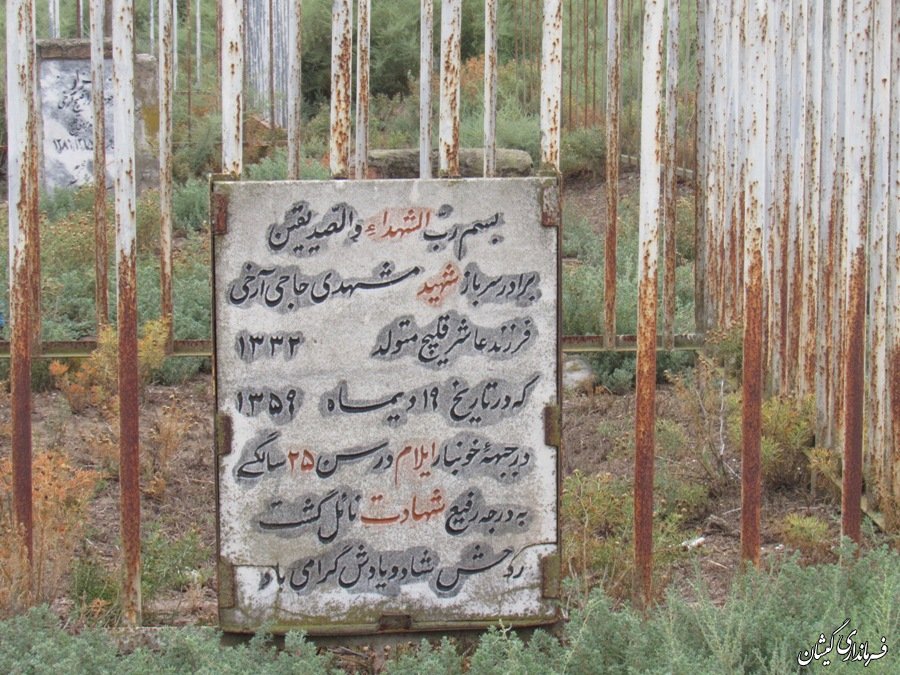 بسم رب الشهداء والصدیقین
برادر سرباز شهید مشهدی حاجی آرخی
فرزند عاشر قلیچ متولد ۱۳۳۲
که در تاریخ ۱۹ دیماه ۱۳۵۹
در جبههٔ خونبار ایلام در سن ۲۵ سالگی
به درجه رفیع شهادت نائل گشت
روحش شاد و یادش گرامی باد
فرمانداری گمیشان